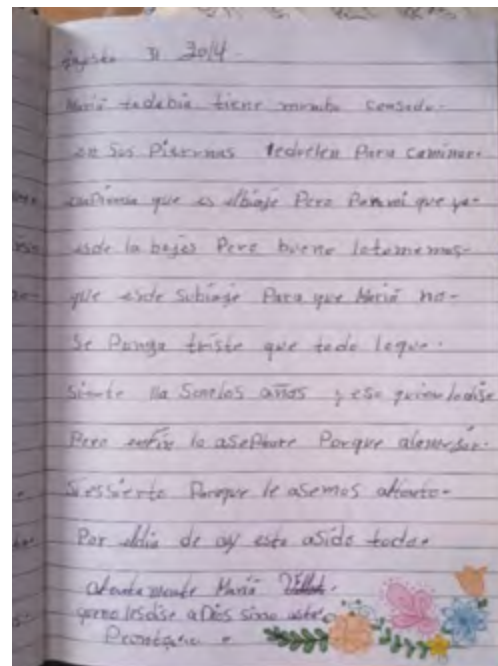 agosto 31 2014-
Maria todabia tiene mucho cansado-
en sus Piernas leduelen Para caminar-
empiensa que es elbiaje Pero Parami que ya-
esde la bejes Pero bueno lotomemos-
que esde subiaje Para que Maria no-
se Ponga triste que todo loque-
siente lla sonelos años y eso quien lodise
Pero enfin lo aseptare Porque
siessierto Porque le asemos
Por eldia de oy esto asido todo-
atentamente Maria
queno lesdise aDios sino asta
Prontoque